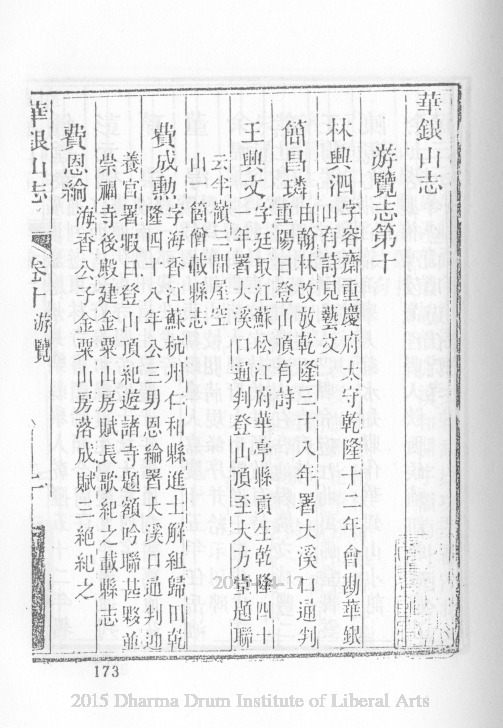 華銀山志
游覽志第十
林興泗字容齋重慶府太守乾隆十二年會勘華銀
山有詩見藝文
簡昌璘由翰林改放乾隆三十八年署大溪口通判
重陽日登山頂有詩
王興文字廷取江蘇松江府華亭縣貢生乾隆四十
一年署大溪口通判登山頂至大方堂題聯
云半嶺三間屋空
山一箇僧載縣志
費成勲字海香江蘇杭州仁和縣進士解組歸田乾
隆四十八年公三男恩綸署大溪口通判迎
養官署暇日登山頂紀遊諸寺題額吟聯甚夥並
崇福寺後殿建金粟山房賦長歌紀之載縣志
費恩綸海香公子金粟山房落成賦三絕紀之
華銀山志
卷十游覽
一
173
2015 Dharma Drum Institute of Liberal Arts